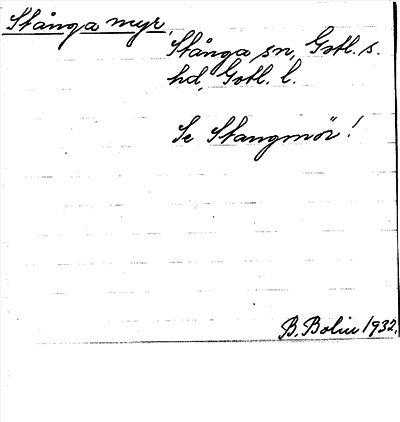 Stånga myr,
Stånga sn, Gotl. s.
hd, Gotl. l.
Se Stangmör!
B. Bolin 1932.